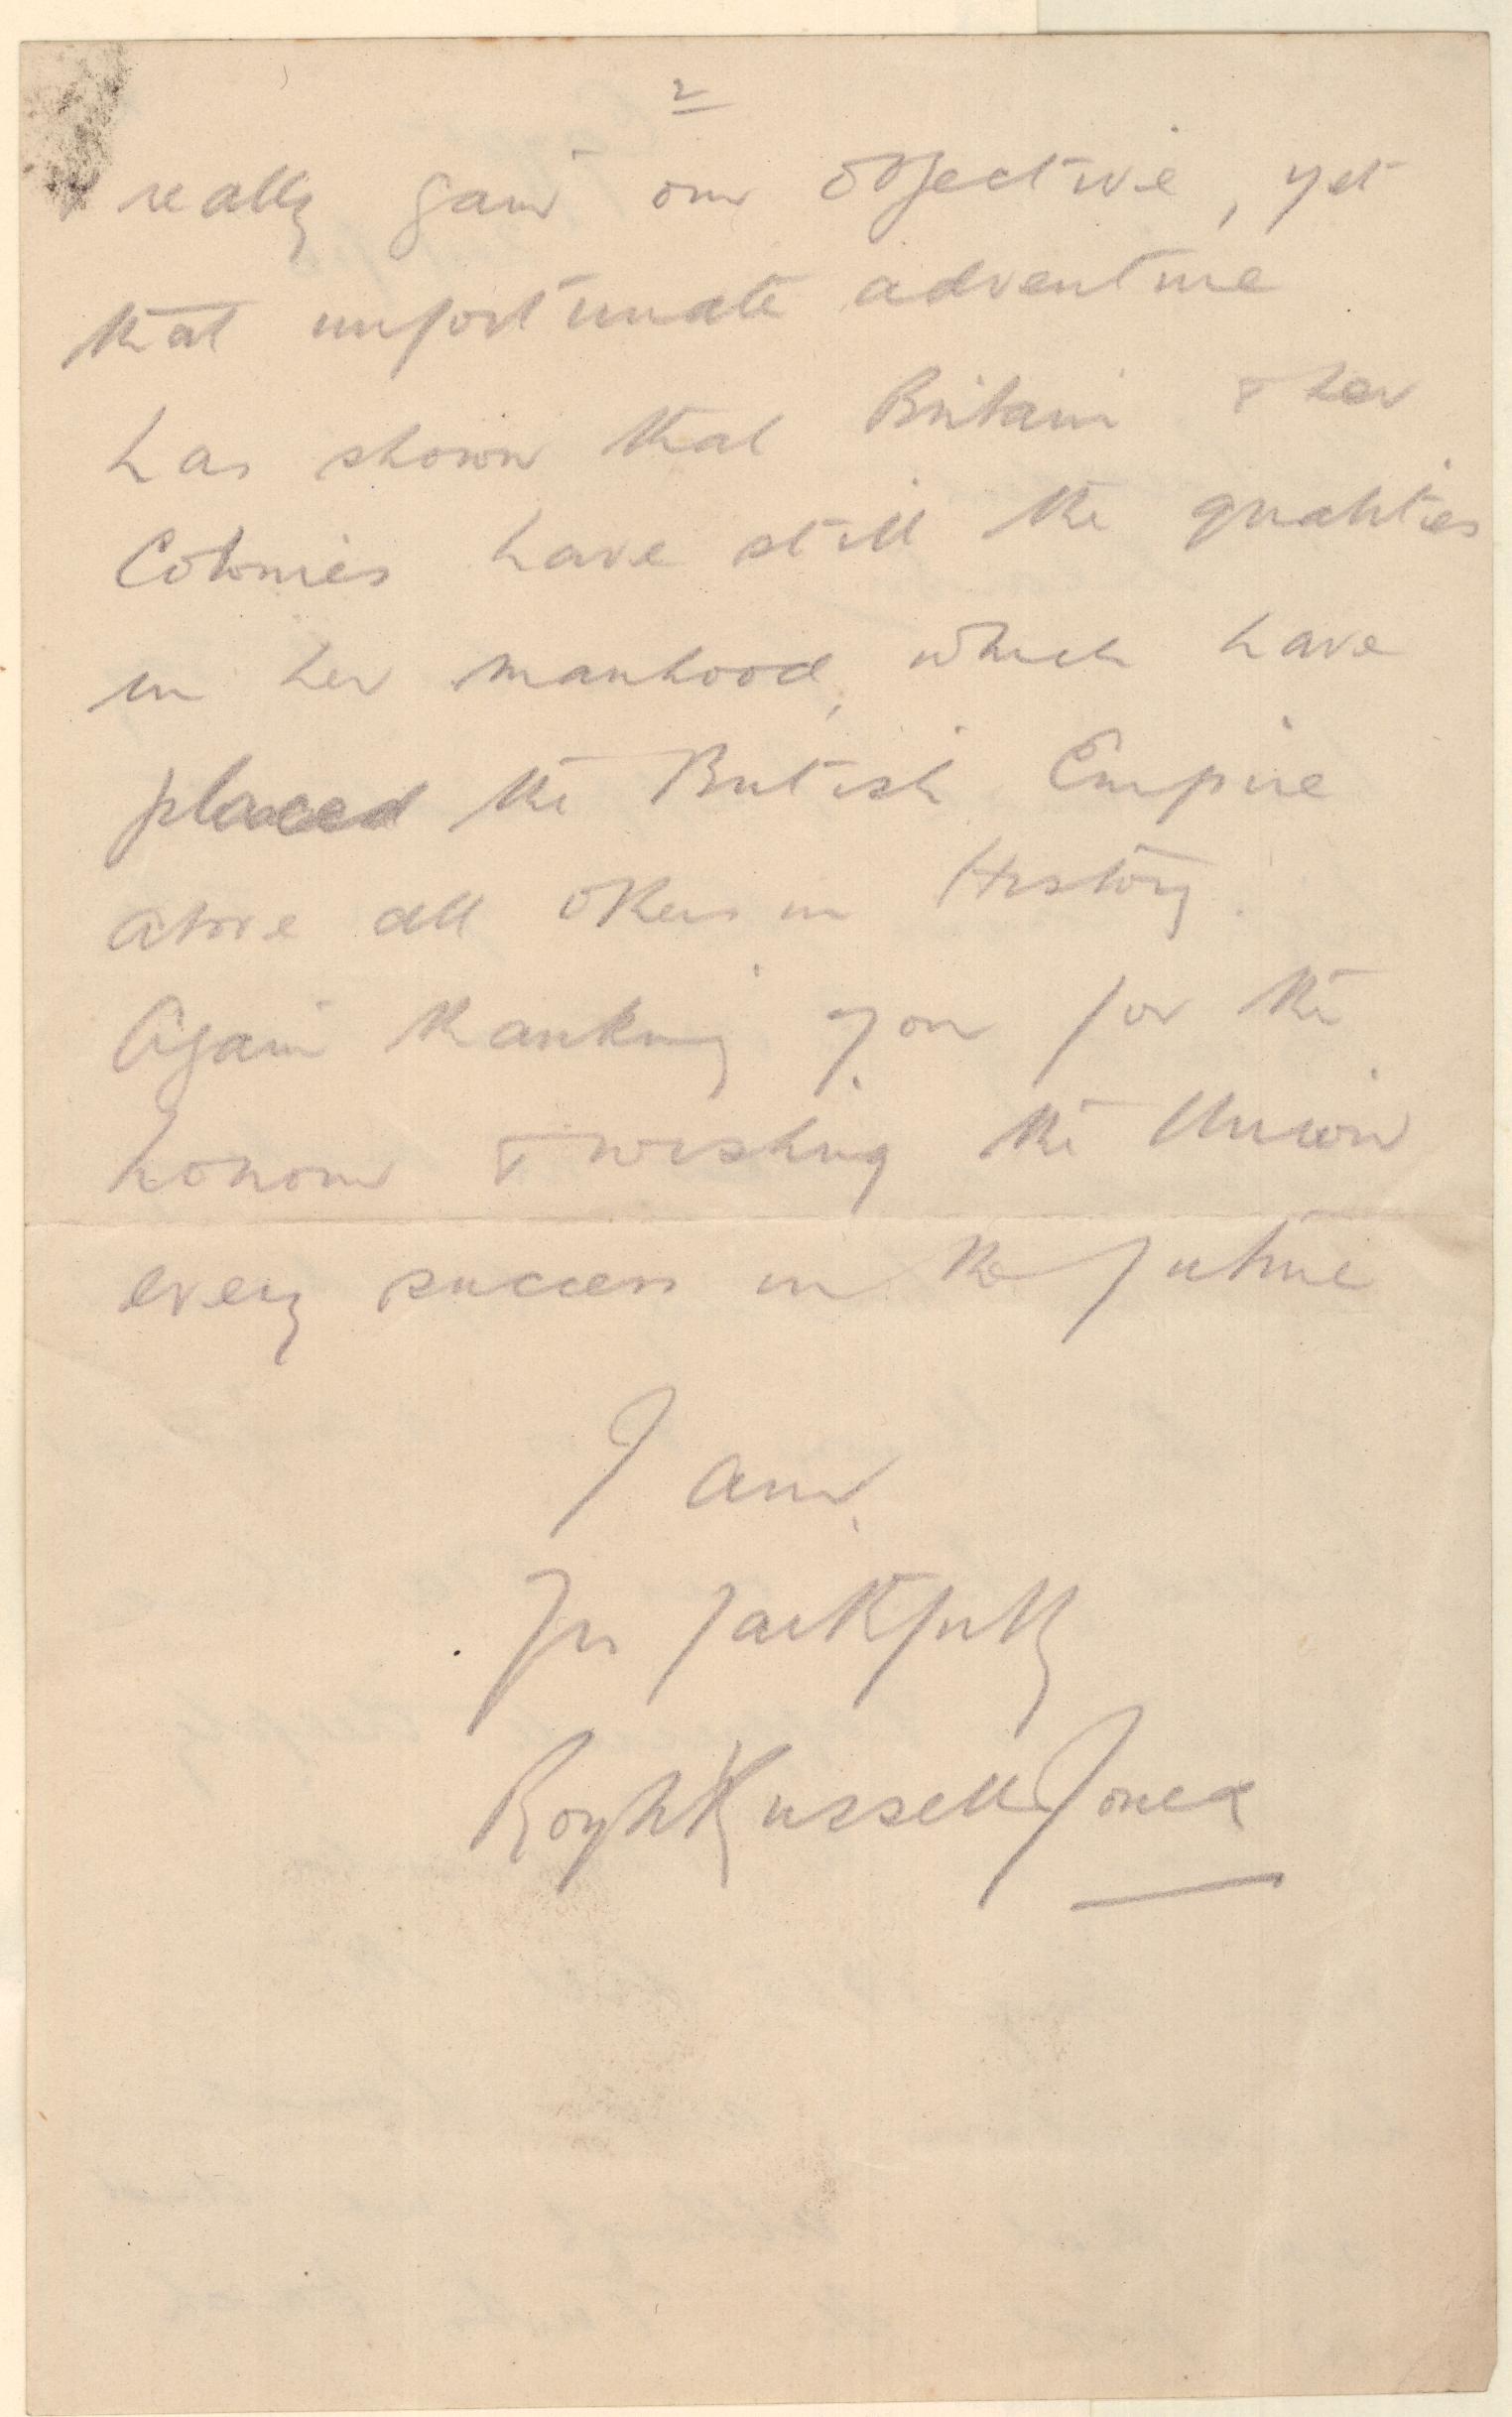 2
really gain our objective, yet
that unfortunate adventure
has shown that Britain & her
Colonies have still the qualities
in her manhood, which have
placed the British Empire
above all others in History.
Again thanking you for the
honour & wishing the Union
every success in the future
I am
Yrs faithfully
Russell Jones